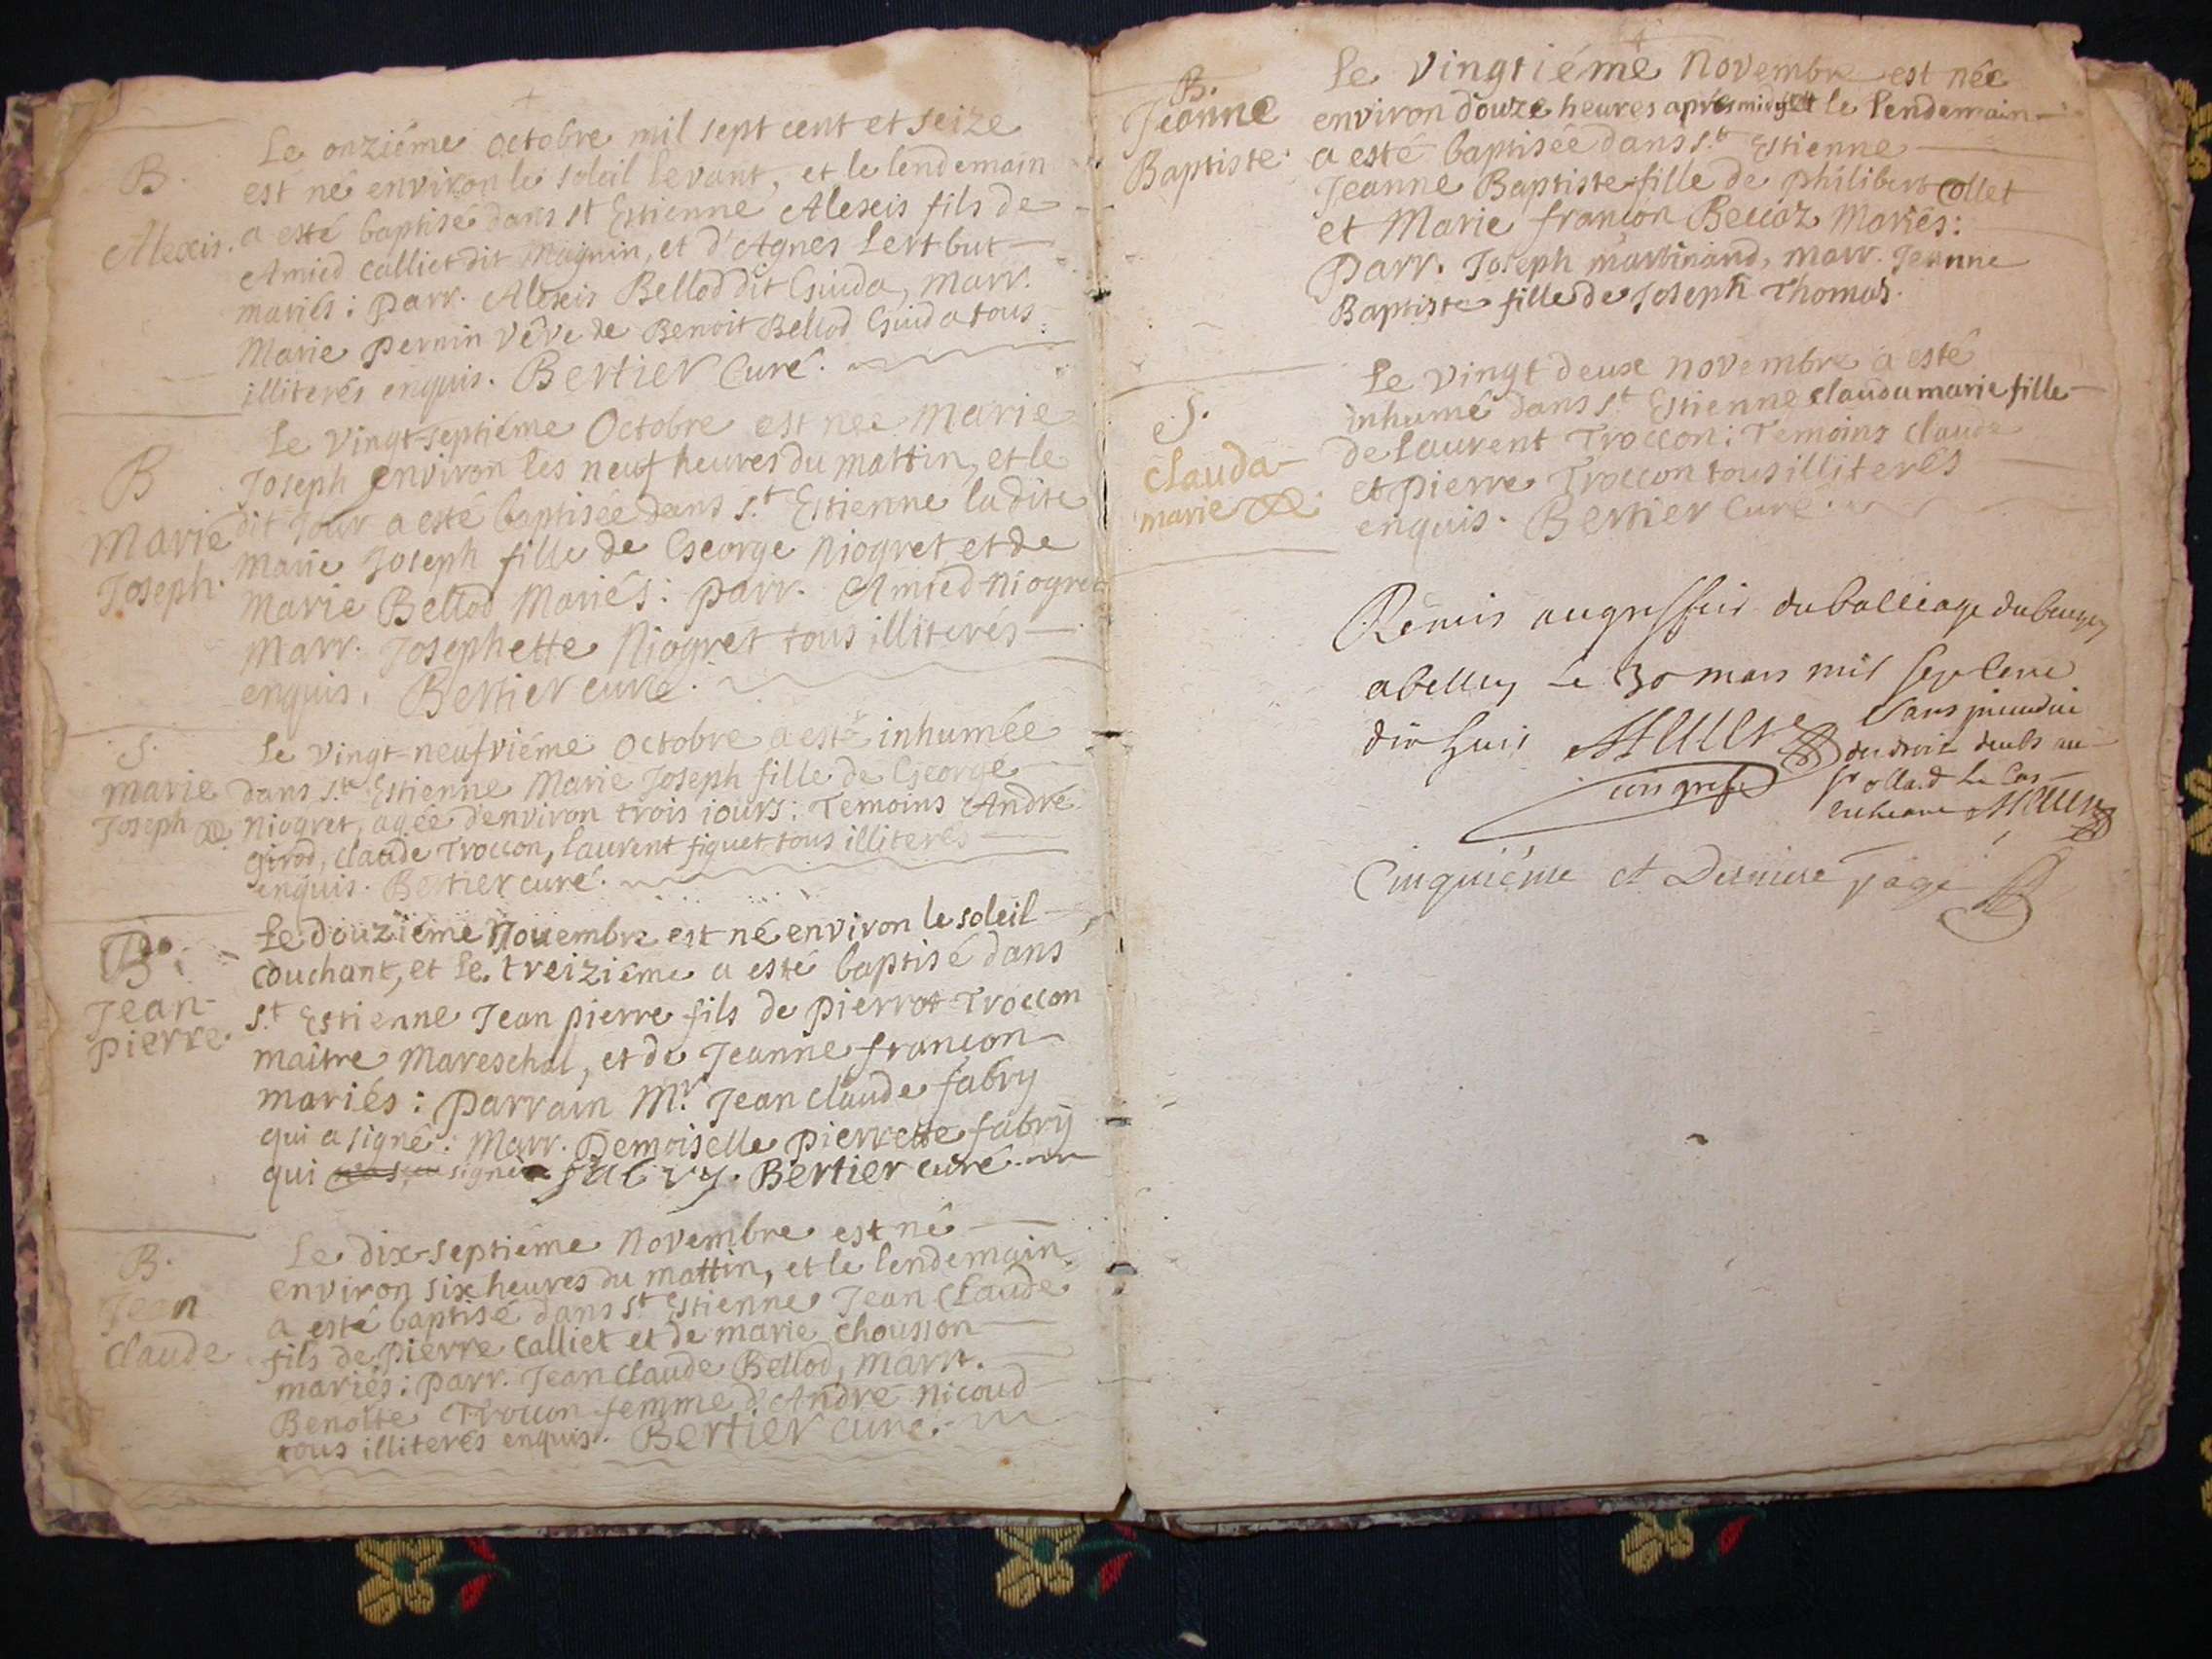 B.
Alexis.
Le onziéme octobre mil sept cent et seize
est né environ le soleil levant, et le lendemain
a esté baptisé dans st Estienne Alexis fils de
Amied Calliet dit Magnin, et d'Agnes Lertbut
mariés : parr. Alexis Bellod dit Guida, marr.
Marie Pernin vêve de Benoit Bellod Guida tous
illiterés enquis. Bertier Curé.
B
Marie
Joseph.
Le vingt-septiéme Octobre est née Marie
Joseph environ les neuf heures du mattin, et le
dit jour a esté baptisée dans s.t Estienne ladite
Marie Joseph fille de George Niogret et de
Marie Bellod Mariés : parr. Amied Niogret
Marr. Josephette Niogret tous illiterés
enquis. Bertier curé.
S.
Marie
Joseph
Le vingt-neufviéme Octobre a esté inhumée
dans s.t Estienne Marie Joseph fille de George
Niogret, agée d'environ trois iours : Temoins André
Girod, Claude Troccon, Laurent figuet tous illiterés
enquis. Bertier curé.
B.
Jean-
pierre.
Le douziéme Nouembre est né environ le soleil
couchant, et le treiziéme a esté baptisé dans
s.t Estienne Jean pierre fils de pierrot Troccon
maître Mareschal, et de Jeanne françon
mariés : parrain M.r Jean Claude fabry
qui a signé : Marr. Demoiselle pierrette fabry
qui n'a sceu signer fabry. Bertier curé
B.
Jean
Claude
Le dix-septiéme Novembre est né
environ six heures du mattin, et le lendemain
a esté baptisé dans st Estienne Jean Claude
fils de pierre Calliet et de marie chousson
mariés : parr. Jean Claude Bellod, Marr.
Benoîte Troccon femme d'André Nicoud
tous illiterés enquis. Bertier curé.
B.
Jeanne
Baptiste.
Le vingtiéme Novembre est née
environ douze heures aprés midy et le lendemain
a esté baptisée dans s.t Estienne
Jeanne Baptiste fille de philibert Collet
et Marie françon Beccaz Mariés :
Parr. Joseph martinand, marr. Jeanne
Baptiste fille de Joseph Thomas.
S.
Clauda
marie
Le vingt deux novembre a esté
inhumé dans s.t Estienne clauda marie fille
de Laurent Troccon : Temoins Claude
et pierre Troccon tous illiterés
enquis. Bertier Curé.
Remis au greffe du balliage du bugey
a belley le 30 mars mil sept cent
dix huit
Sans preiudice
du droit deub au
Sr ollard le cas
Cinquiéme et Derniere page